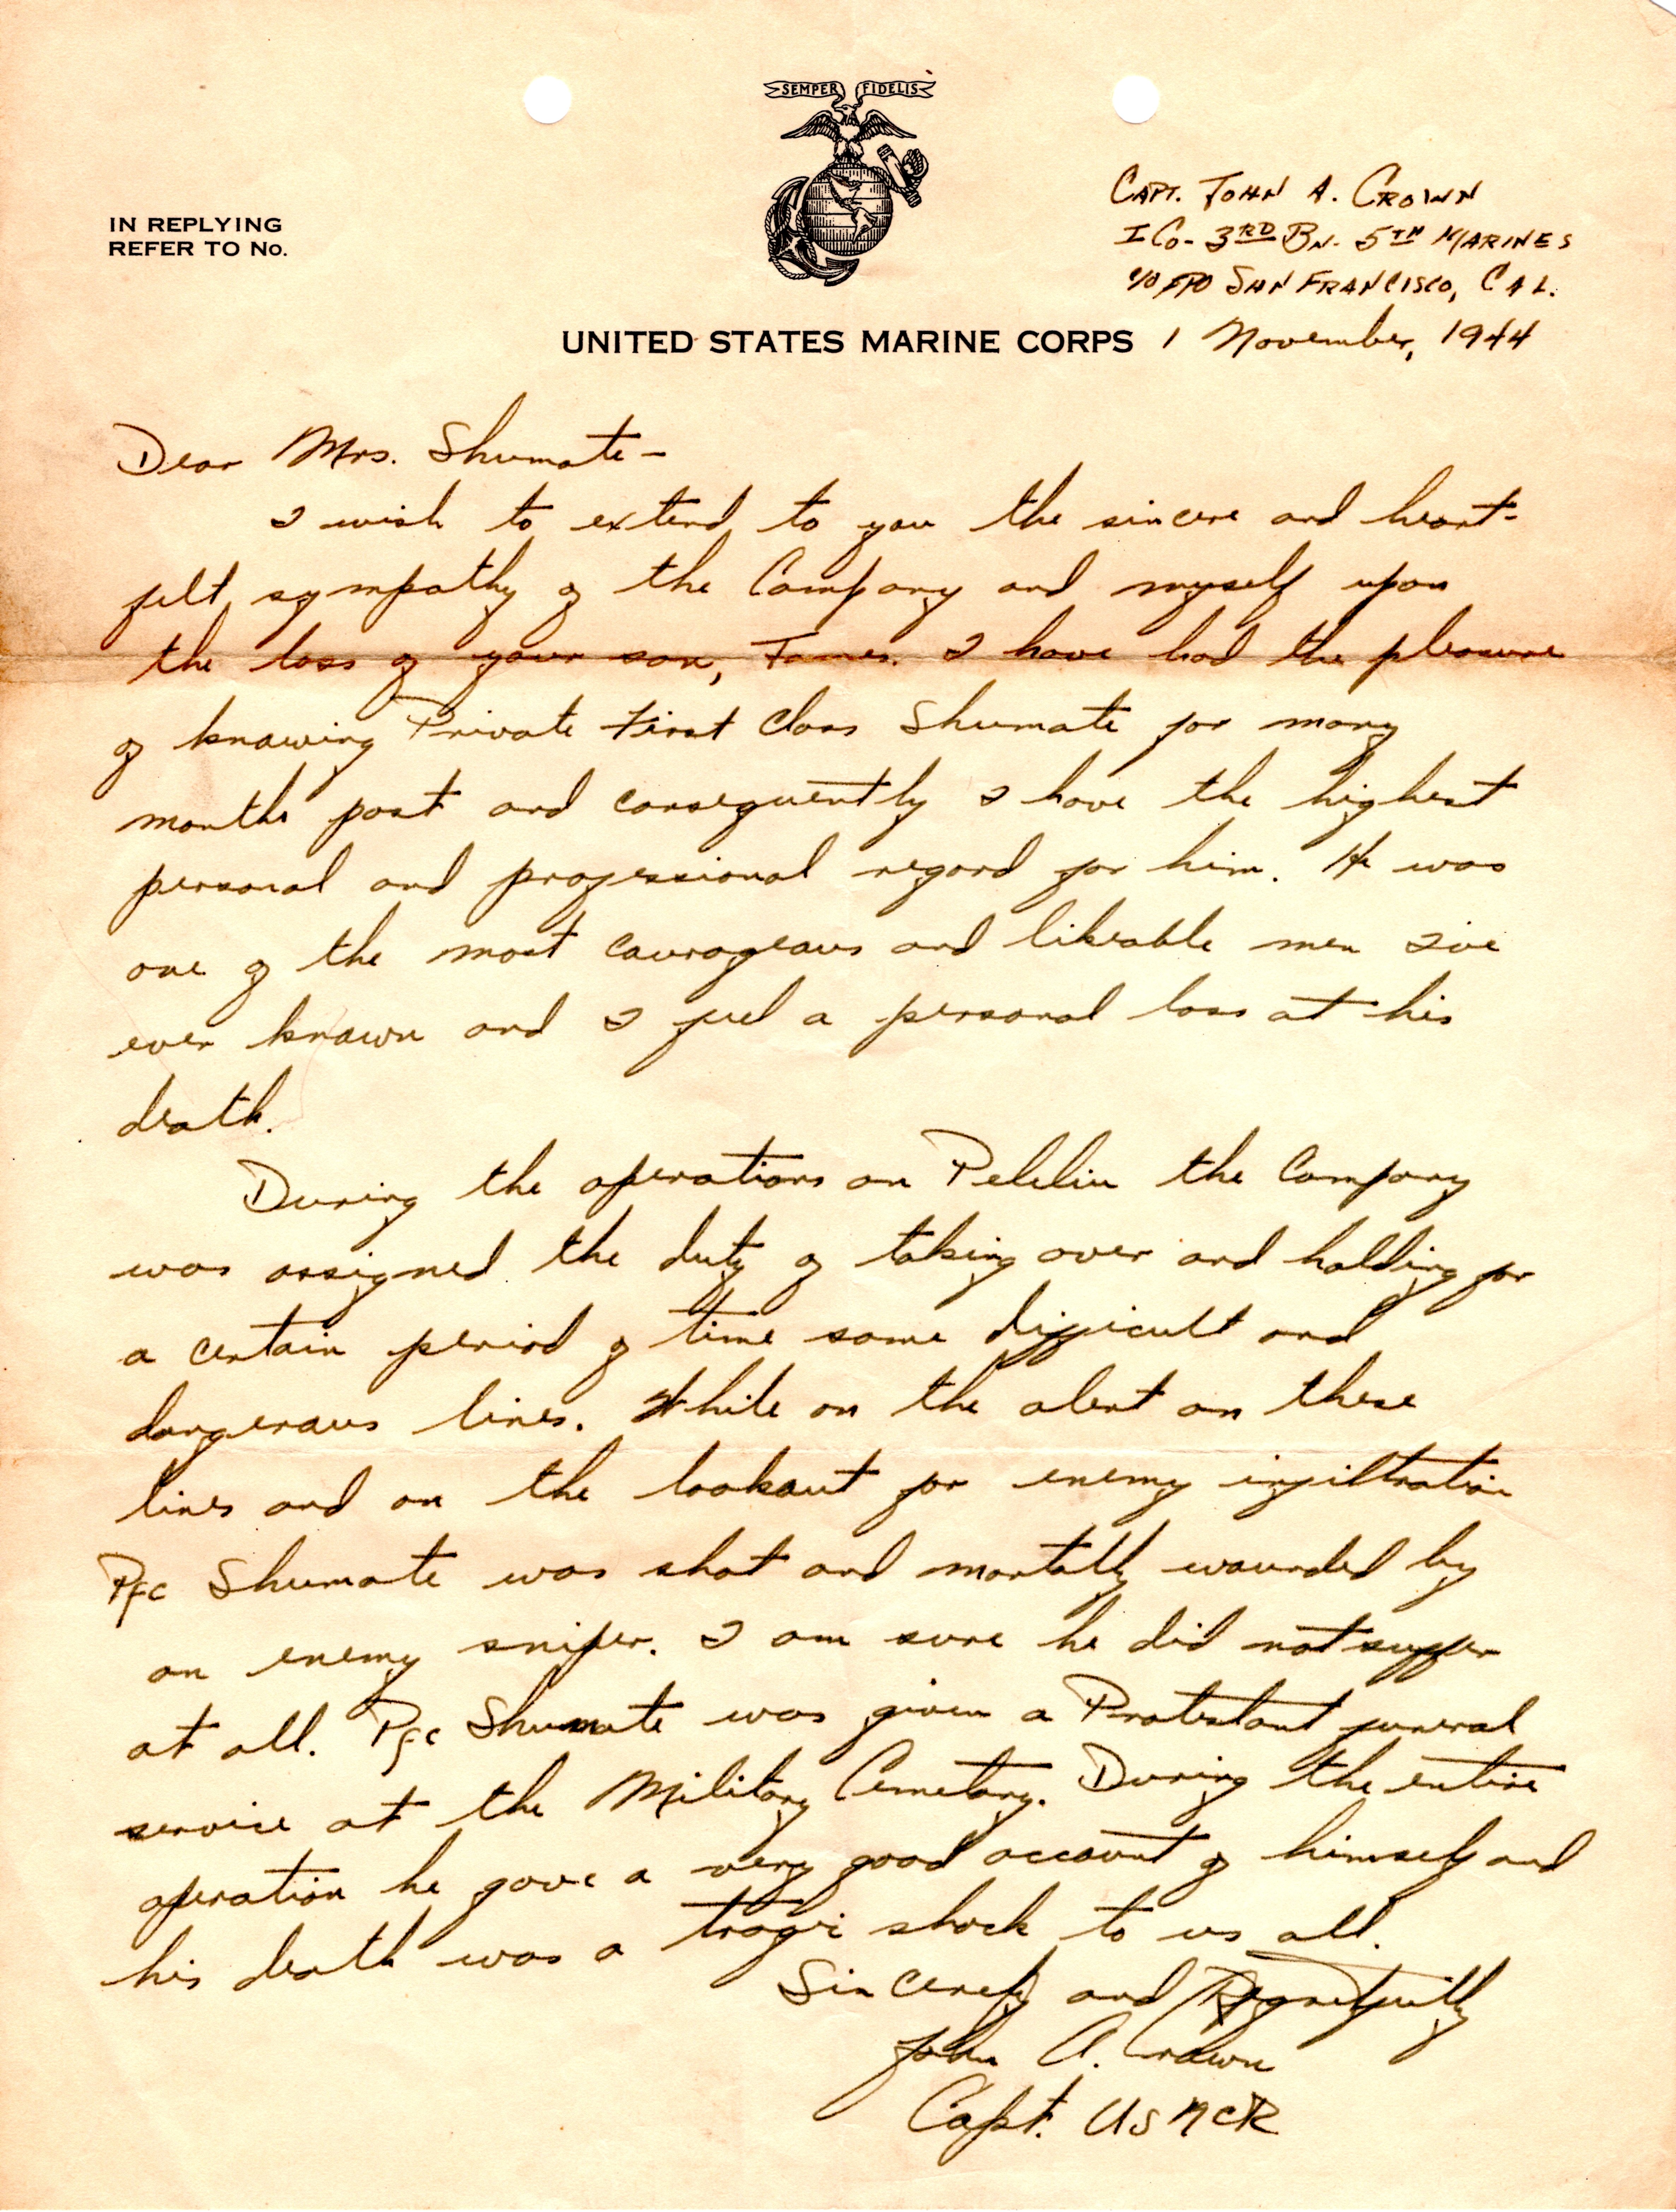 SEMPER FIDELIS
CAPT. JOHN A. CROWN
I CO- 3RD BN. 5TH MARINES
IN REPLYING
REFER TO No.
c/o FPO SAN FRANCISCO, CAL.
UNITED STATES MARINE CORPS 1 November, 1944
Dear Mrs. Shumate-
I wish to extend to you the sincere and heart-
felt sympathy of the Company and myself upon
the loss of your son, James. I have had the pleasure
of knowing Private First Class Shumate for many
months past and consequently I have the highest
personal and professional regard for him. He was
one of the most courageous and likeable men I've
ever known and I feel a personal loss at his
death.
During the operations on Peleliu the Company
was assigned the duty of taking over and holding for
a certain period of time some difficult and
dangerous lines. While on the alert on these
lines and on the lookout for enemy infiltration
Pfc Shumate was shot and mortally wounded by
an enemy sniper. I am sure he did not suffer
at all. Pfc Shumate was given a Protestant funeral
service at the Military Cemetary. During the entire
operation he gave a very good account of himself and
his death was a tragic shock to us all.
Sincerely and Regretfully
John A. Crown
Capt. USMCR